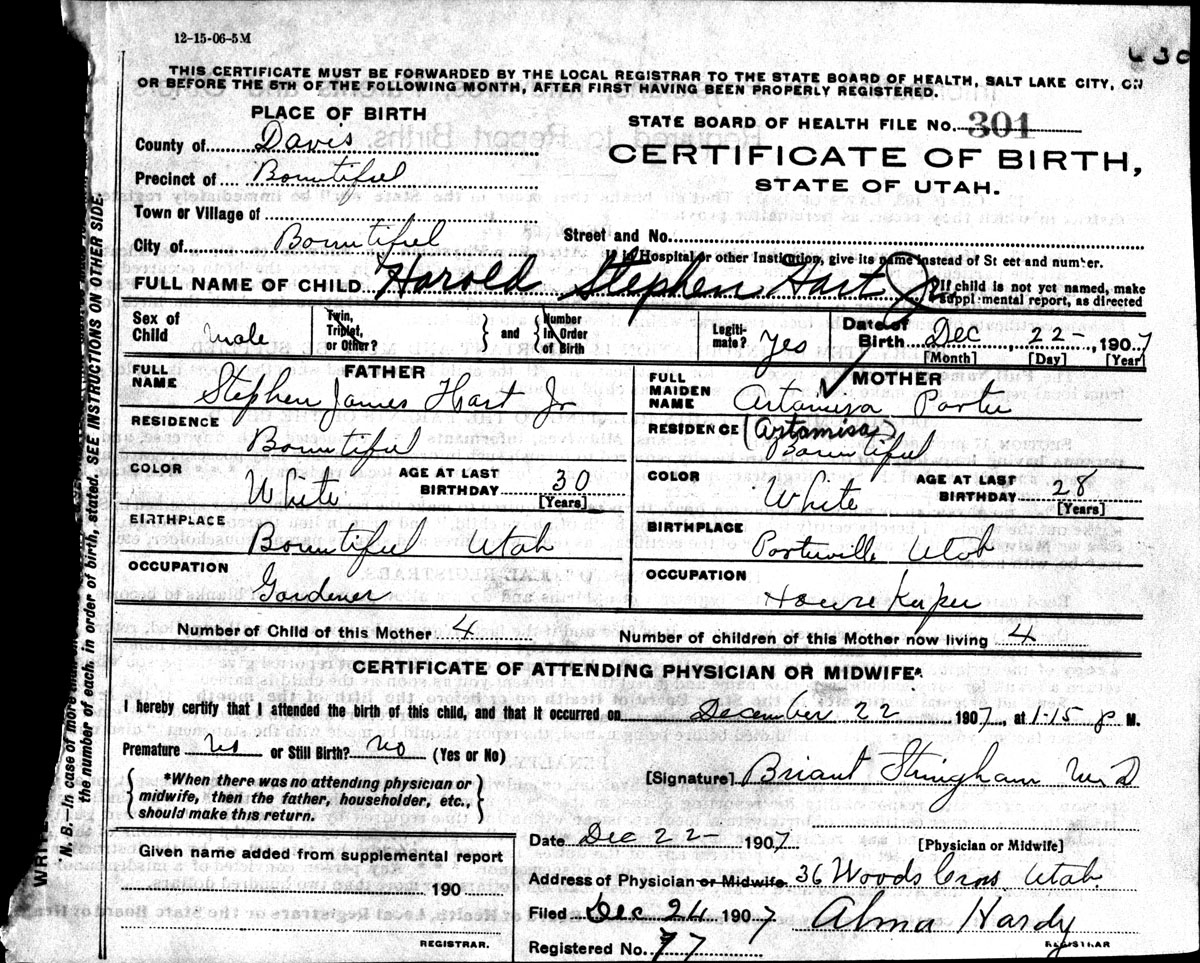 12-15-06-5M
THIS CERTIFICATE MUST BE FORWARDED BY THE LOCAL REGISTRAR TO THE STATE BOARD OF HEALTH, SALT LAKE CITY, ON
OR BEFORE THE 5TH OF THE FOLLOWING MONTH, AFTER FIRST HAVING BEEN PROPERLY REGISTERED.
PLACE OF BIRTH
County of Davis
Precinct of Bountiful
Town or Village of
City of Bountiful
STATE BOARD OF HEALTH FILE No. 301
CERTIFICATE OF BIRTH,
STATE OF UTAH.
Street and No.
If in Hospital or other Institution, give its name instead of St eet and number.
FULL NAME OF CHILD Harold Stephen Hart Jr
If child is not yet named, make
suppl mental report, as directed
Sex of Child male
Twin, Triplet, or Other?
and
Number In Order of Birth
Legiti-mate? Yes
Date of Birth Dec 22, 1907
[Month] [Day] [Year]
FATHER
FULL NAME Stephen James Hart Jr
RESIDENCE Bountiful
COLOR White AGE AT LAST BIRTHDAY 30
[Years]
BIRTHPLACE Bountiful Utah
OCCUPATION Gardener
MOTHER
FULL MAIDEN NAME Artamisa Porter
RESIDENCE (Artamisa) Bountiful
COLOR White AGE AT LAST BIRTHDAY 28
[Years]
BIRTHPLACE Porterville Utah
OCCUPATION House Keeper
Number of Child of this Mother 4
Number of children of this Mother now living 4
CERTIFICATE OF ATTENDING PHYSICIAN OR MIDWIFE*.
I hereby certify that I attended the birth of this child, and that it occurred on December 22 1907, at 1-15 p M.
Premature no or Still Birth? no (Yes or No)
*When there was no attending physician or
midwife, then the father, householder, etc.,
should make this return.
[Signature] Briant Stringham M D
Date Dec 22 1907
[Physician or Midwife]
Address of Physician or Midwife 36 Woods Cross Utah
Given name added from supplemental report
190
REGISTRAR.
Filed Dec 24 1907 Alma Hardy
REGISTRAR
Registered No. 77
N. B.—In case of more
the number of each, in order of birth, stated. SEE INSTRUCTIONS ON OTHER SIDE.